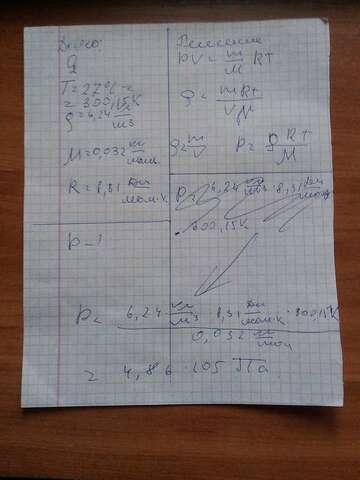 Дано:
T = 27°C =
= 300,15K
ρ = 6,24 кг/м3
M = 0,032 кг/моль
R = 8,31 Дж/моль·К
p – ?
Решение
PV = m/M RT
P = mRT/VM
ρ = m/V P = ρRT/M
P = 6,24 кг/м3 · 8,31 Дж/моль·К
· 300,15K
P = 6,24 кг/м3 · 8,31 Дж/моль·К · 300,15K / 0,032 кг/моль
= 4,86 · 105 Па